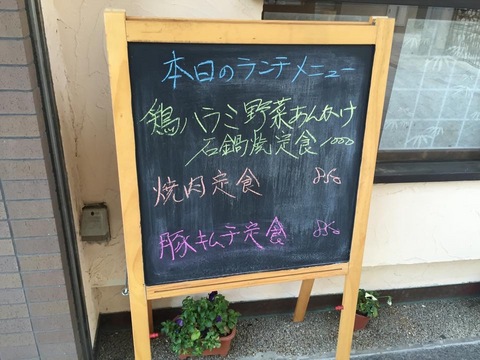 本日のランチメニュー
鶏ハラミ野菜あんかけ
石鍋焼定食 1000
焼肉定食 850
豚キムチ定食 850